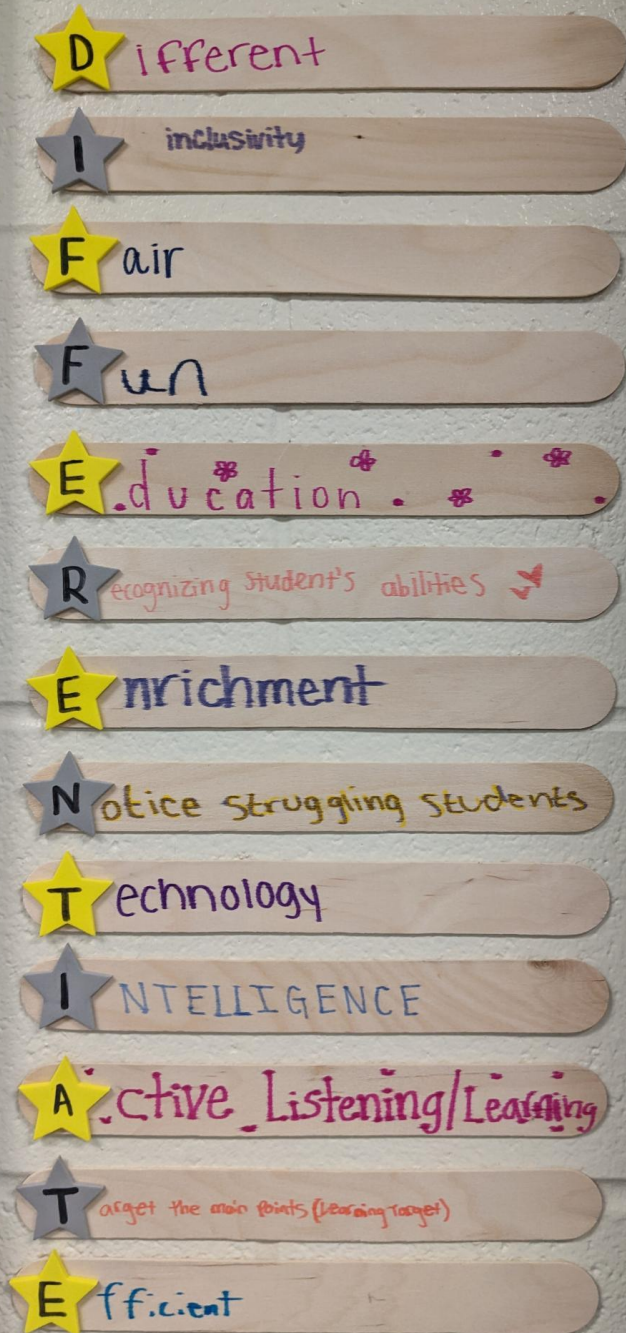 Different
I inclusivity
Fair
Fun
Education.
Recognizing Student's abilities
Enrichment
Notice struggling students
Technology
INTELLIGENCE
Active Listening/Learning
Target the main Points (Learning Target)
Efficient